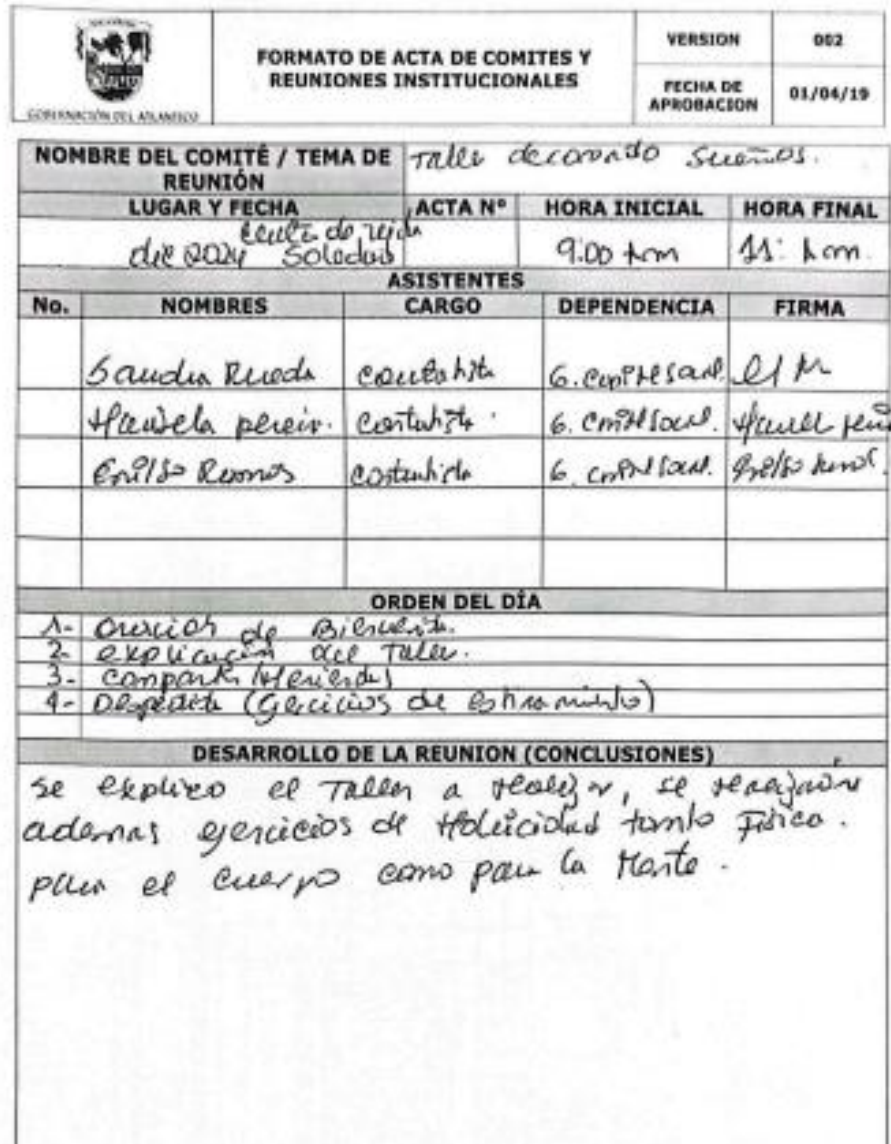 GOBERNACIÓN DEL ATLÁNTICO
FORMATO DE ACTA DE COMITES Y
REUNIONES INSTITUCIONALES
VERSION 002
FECHA DE
APROBACION 01/04/19
NOMBRE DEL COMITÉ / TEMA DE
REUNIÓN
Taller decorando Sueños.
LUGAR Y FECHA ACTA Nº HORA INICIAL HORA FINAL
de vida
dic 2024 Soledad 9:00 Am 11: Am.
ASISTENTES
No. NOMBRES CARGO DEPENDENCIA FIRMA
Sandra Rueda contratista G.
contratista G.
Ramos contratista G.
ORDEN DEL DÍA
1- de Bienvenida.
2- explicación del Taller.
3- Compartir (Merienda)
4- Despedida (Ejercicios de estiramiento)
DESARROLLO DE LA REUNION (CONCLUSIONES)
se explico el Taller a realizar, se realizaron
ademas ejercicios de tanto Fisico.
para el cuerpo como para la Mente.